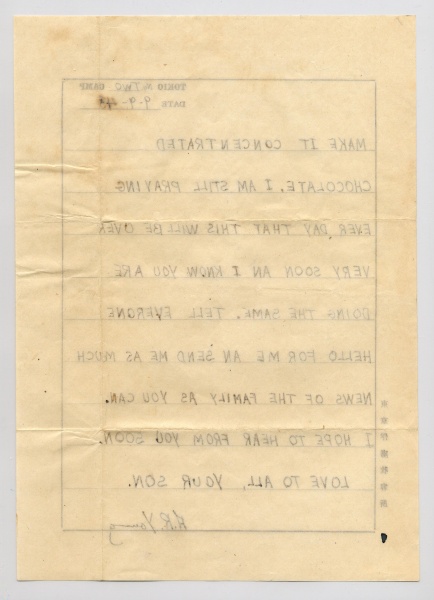 TOKIO № TWO CAMP
DATE
MAKE IT CONCENTRATED
CHOCOLATE. I AM STILL PRAYING
EVER DAY THAT THIS WILL BE OVER
VERY SOON AN I KNOW YOU ARE
DOING THE SAME. TELL EVERONE
HELLO FOR ME AN SEND ME AS MUCH
NEWS OF THE FAMILY AS YOU CAN.
I HOPE TO HEAR FROM YOU SOON.
LOVE TO ALL, YOUR SON.
Young